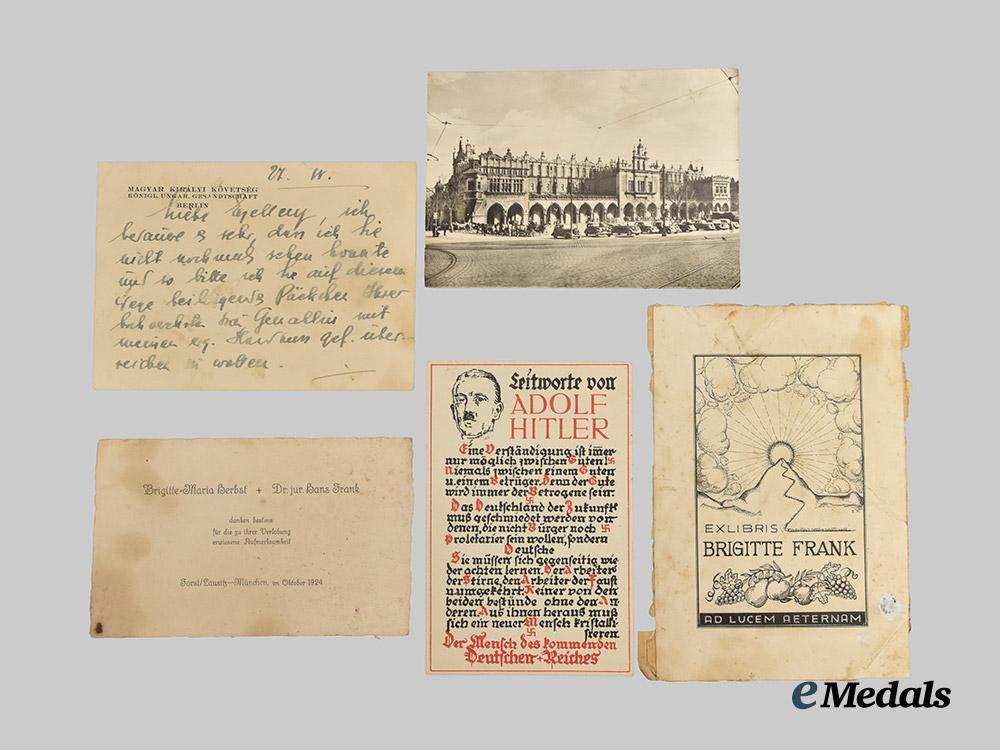 27. IV.
MAGYAR KIRÁLYI KÖVETSÉG
KÖNIGL. UNGAR. GESANDTSCHAFT
BERLIN
Liebe Exellenz, ich
bedaure es sehr, dass ich Sie
nicht nochmals sehen konnte
und so bitte ich Sie auf diesem
Wege beiliegendes Päckchen Ihrer
hochverehrten Frau Gemahlin mit
meinem erg. Handkuss gef. über-
reichen zu wollen.
Brigitte-Maria Herbst + Dr. jur. Hans Frank
danken bestens
für die zu ihrer Verlobung
erwiesene Aufmerksamkeit
Forst/Lausitz—München, im Oktober 1924
Leitworte von
ADOLF
HITLER
Eine Verständigung ist im̄er
nur möglich zwischen Guten!
Niemals zwischen einem Guten
u. einem Betrüger. Denn der Gute
wird immer der Betrogene sein.
Das Deutschland der Zukunft
muß geschmiedet werden von
denen, die nicht Bürger noch
Proletarier sein wollen, sondern
Deutsche
Sie müssen sich gegenseitig wie-
der achten lernen. Der Arbeiter
der Stirne, den Arbeiter der Faust
u. umgekehrt. Keiner von den
beiden bestünde ohne den An-
deren. Aus ihnen heraus muß
sich ein neuer Mensch kristalli-
sieren.
Der Mensch des kommenden
Deutschen + Reiches
EXLIBRIS
BRIGITTE FRANK
AD LUCEM AETERNAM
eMedals